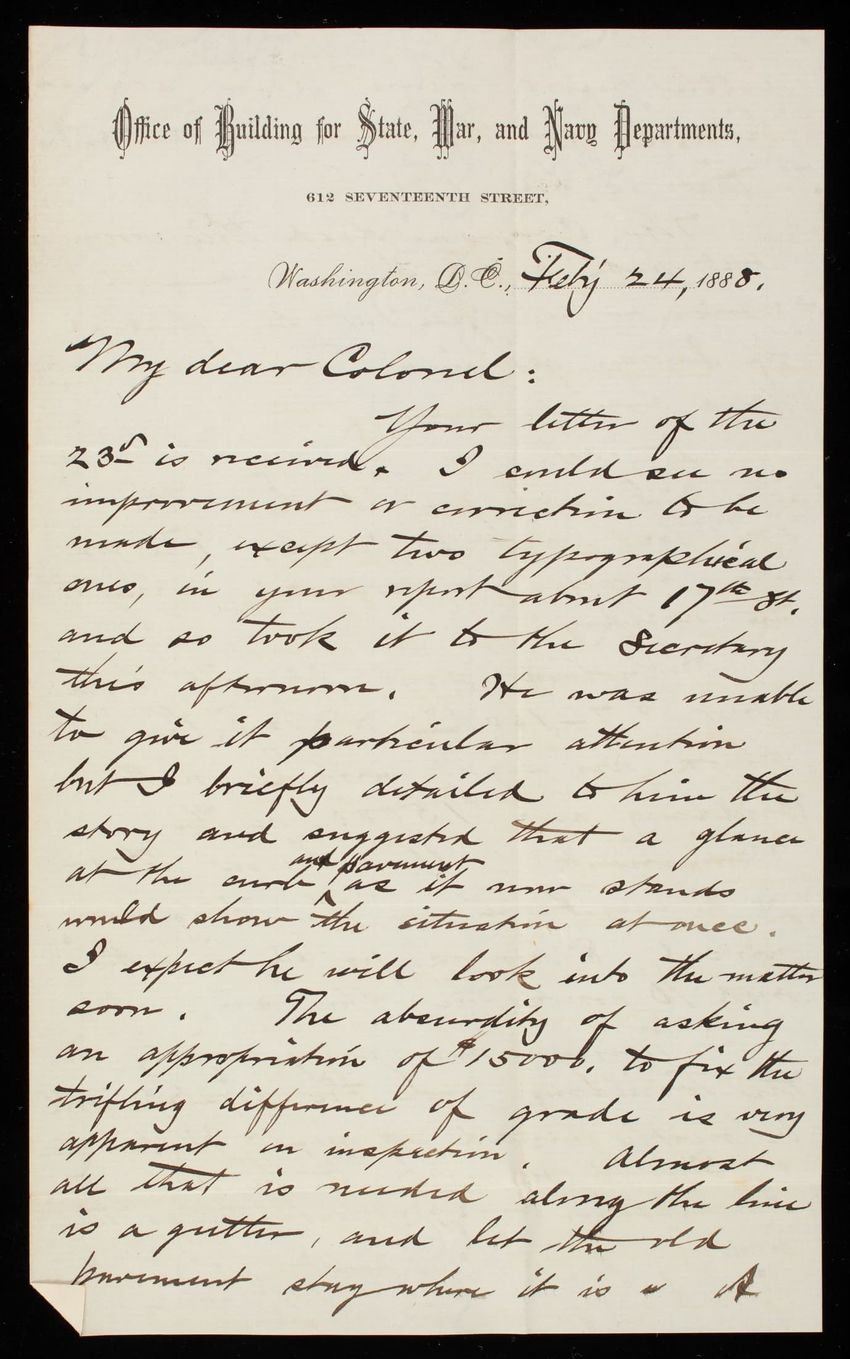 Office of Building for State, War, and Navy Departments,
612 SEVENTEENTH STREET,
Washington, D. C., Feb'y 24, 1888.
My dear Colonel:
Your letter of the
23d is received. I could see no
improvement or correction to be
made, except two typographical
ones, in your report about 17th St.
and so took it to the Secretary
this afternoon. He was unable
to give it particular attention
but I briefly detailed to him the
story and suggested that a glance
and pavement
at the curb ^ as it now stands
would show the situation at once.
I expect he will look into the matter
soon. The absurdity of asking
an appropriation of $15000. to fix the
trifling difference of grade is very
apparent on inspection. Almost
all that is needed along the line
is a gutter, and let the old
pavement stay where it is. A